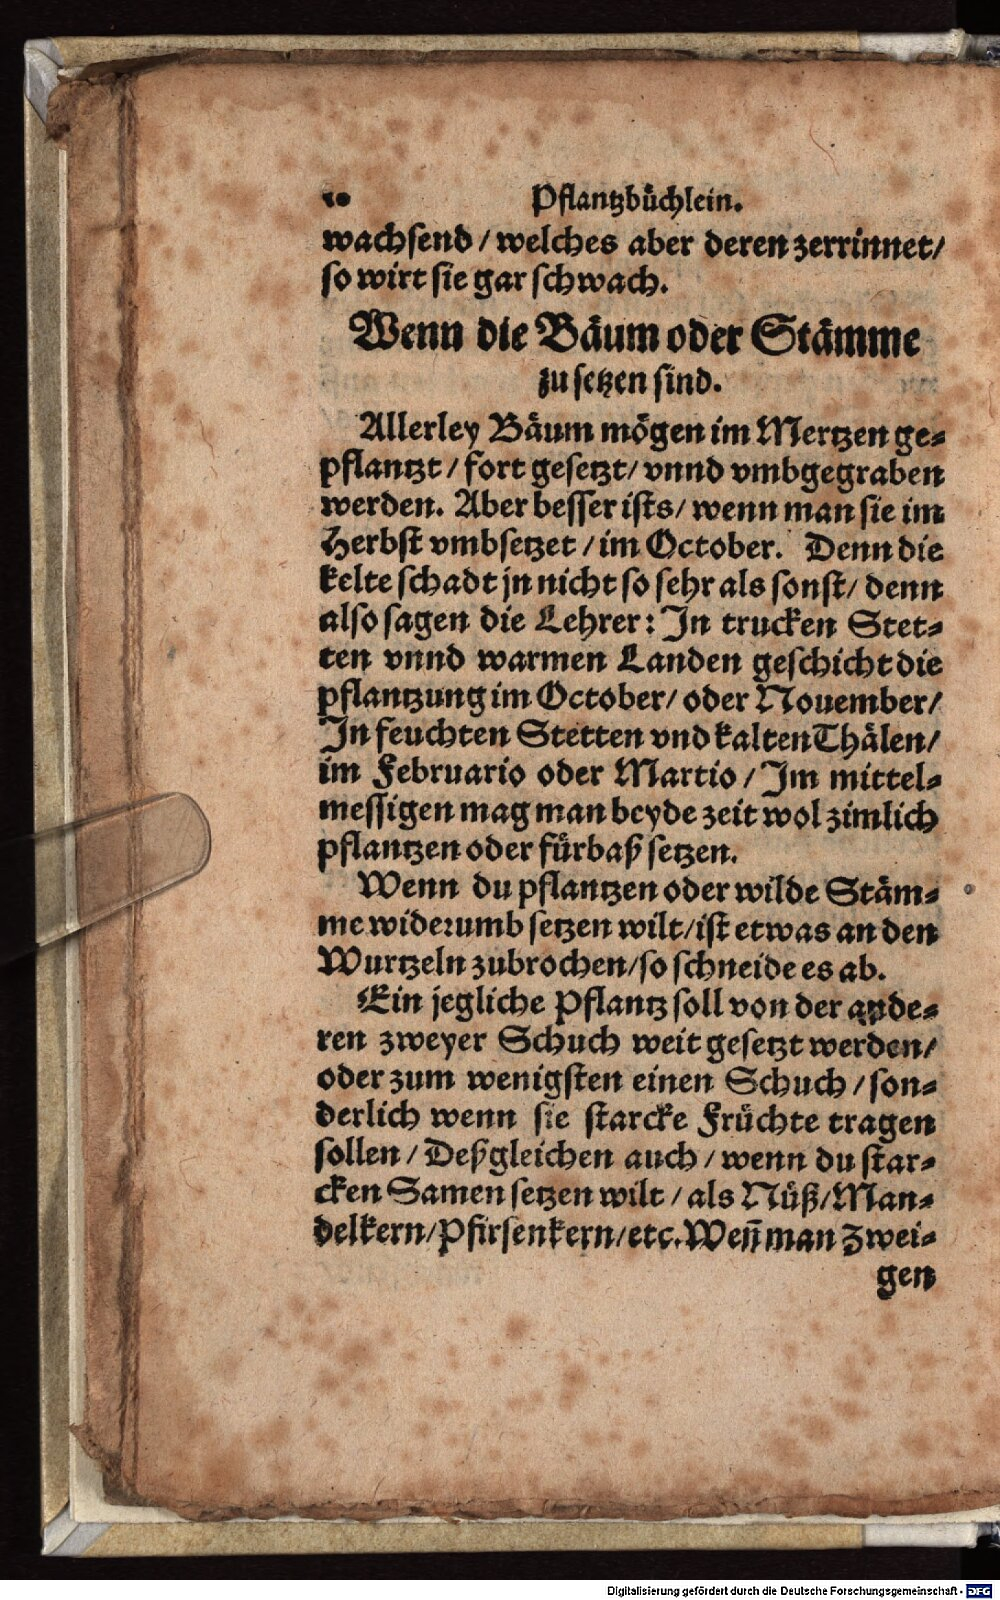 10 Pflantzbüchlein.
wachsend / welches aber deren zerrinnet/
so wirt sie gar schwach.
Wenn die Bäum oder Stämme
zu setzen sind.
Allerley Bäum mögen im Mertzen ge-
pflantzt / fort gesetzt / vnnd vmbgegraben
werden. Aber besser ists / wenn man sie im
Herbst vmbsetzet / im October. Denn die
kelte schadt jn nicht so sehr als sonst / denn
also sagen die Lehrer: In trucken Stet-
ten vnnd warmen Landen geschicht die
pflantzung im October / oder Nouember /
In feuchten Stetten vnd kalten Thälen /
im Februario oder Martio / Im mittel-
messigen mag man beyde zeit wol zimlich
pflantzen oder fürbaß setzen.
Wenn du pflantzen oder wilde Stäm-
me widerumb setzen wilt / ist etwas an den
Wurtzeln zubrochen / so schneide es ab.
Ein jegliche Pflantz soll von der ande-
ren zweyer Schuch weit gesetzt werden /
oder zum wenigsten einen Schuch / son-
derlich wenn sie starcke Früchte tragen
sollen / Deßgleichen auch / wenn du star-
cken Samen setzen wilt / als Nüß / Man-
delkern / Pfirsenkern / etc. Weñ man Zwei-
gen
Digitalisierung gefördert durch die Deutsche Forschungsgemeinschaft - DFG